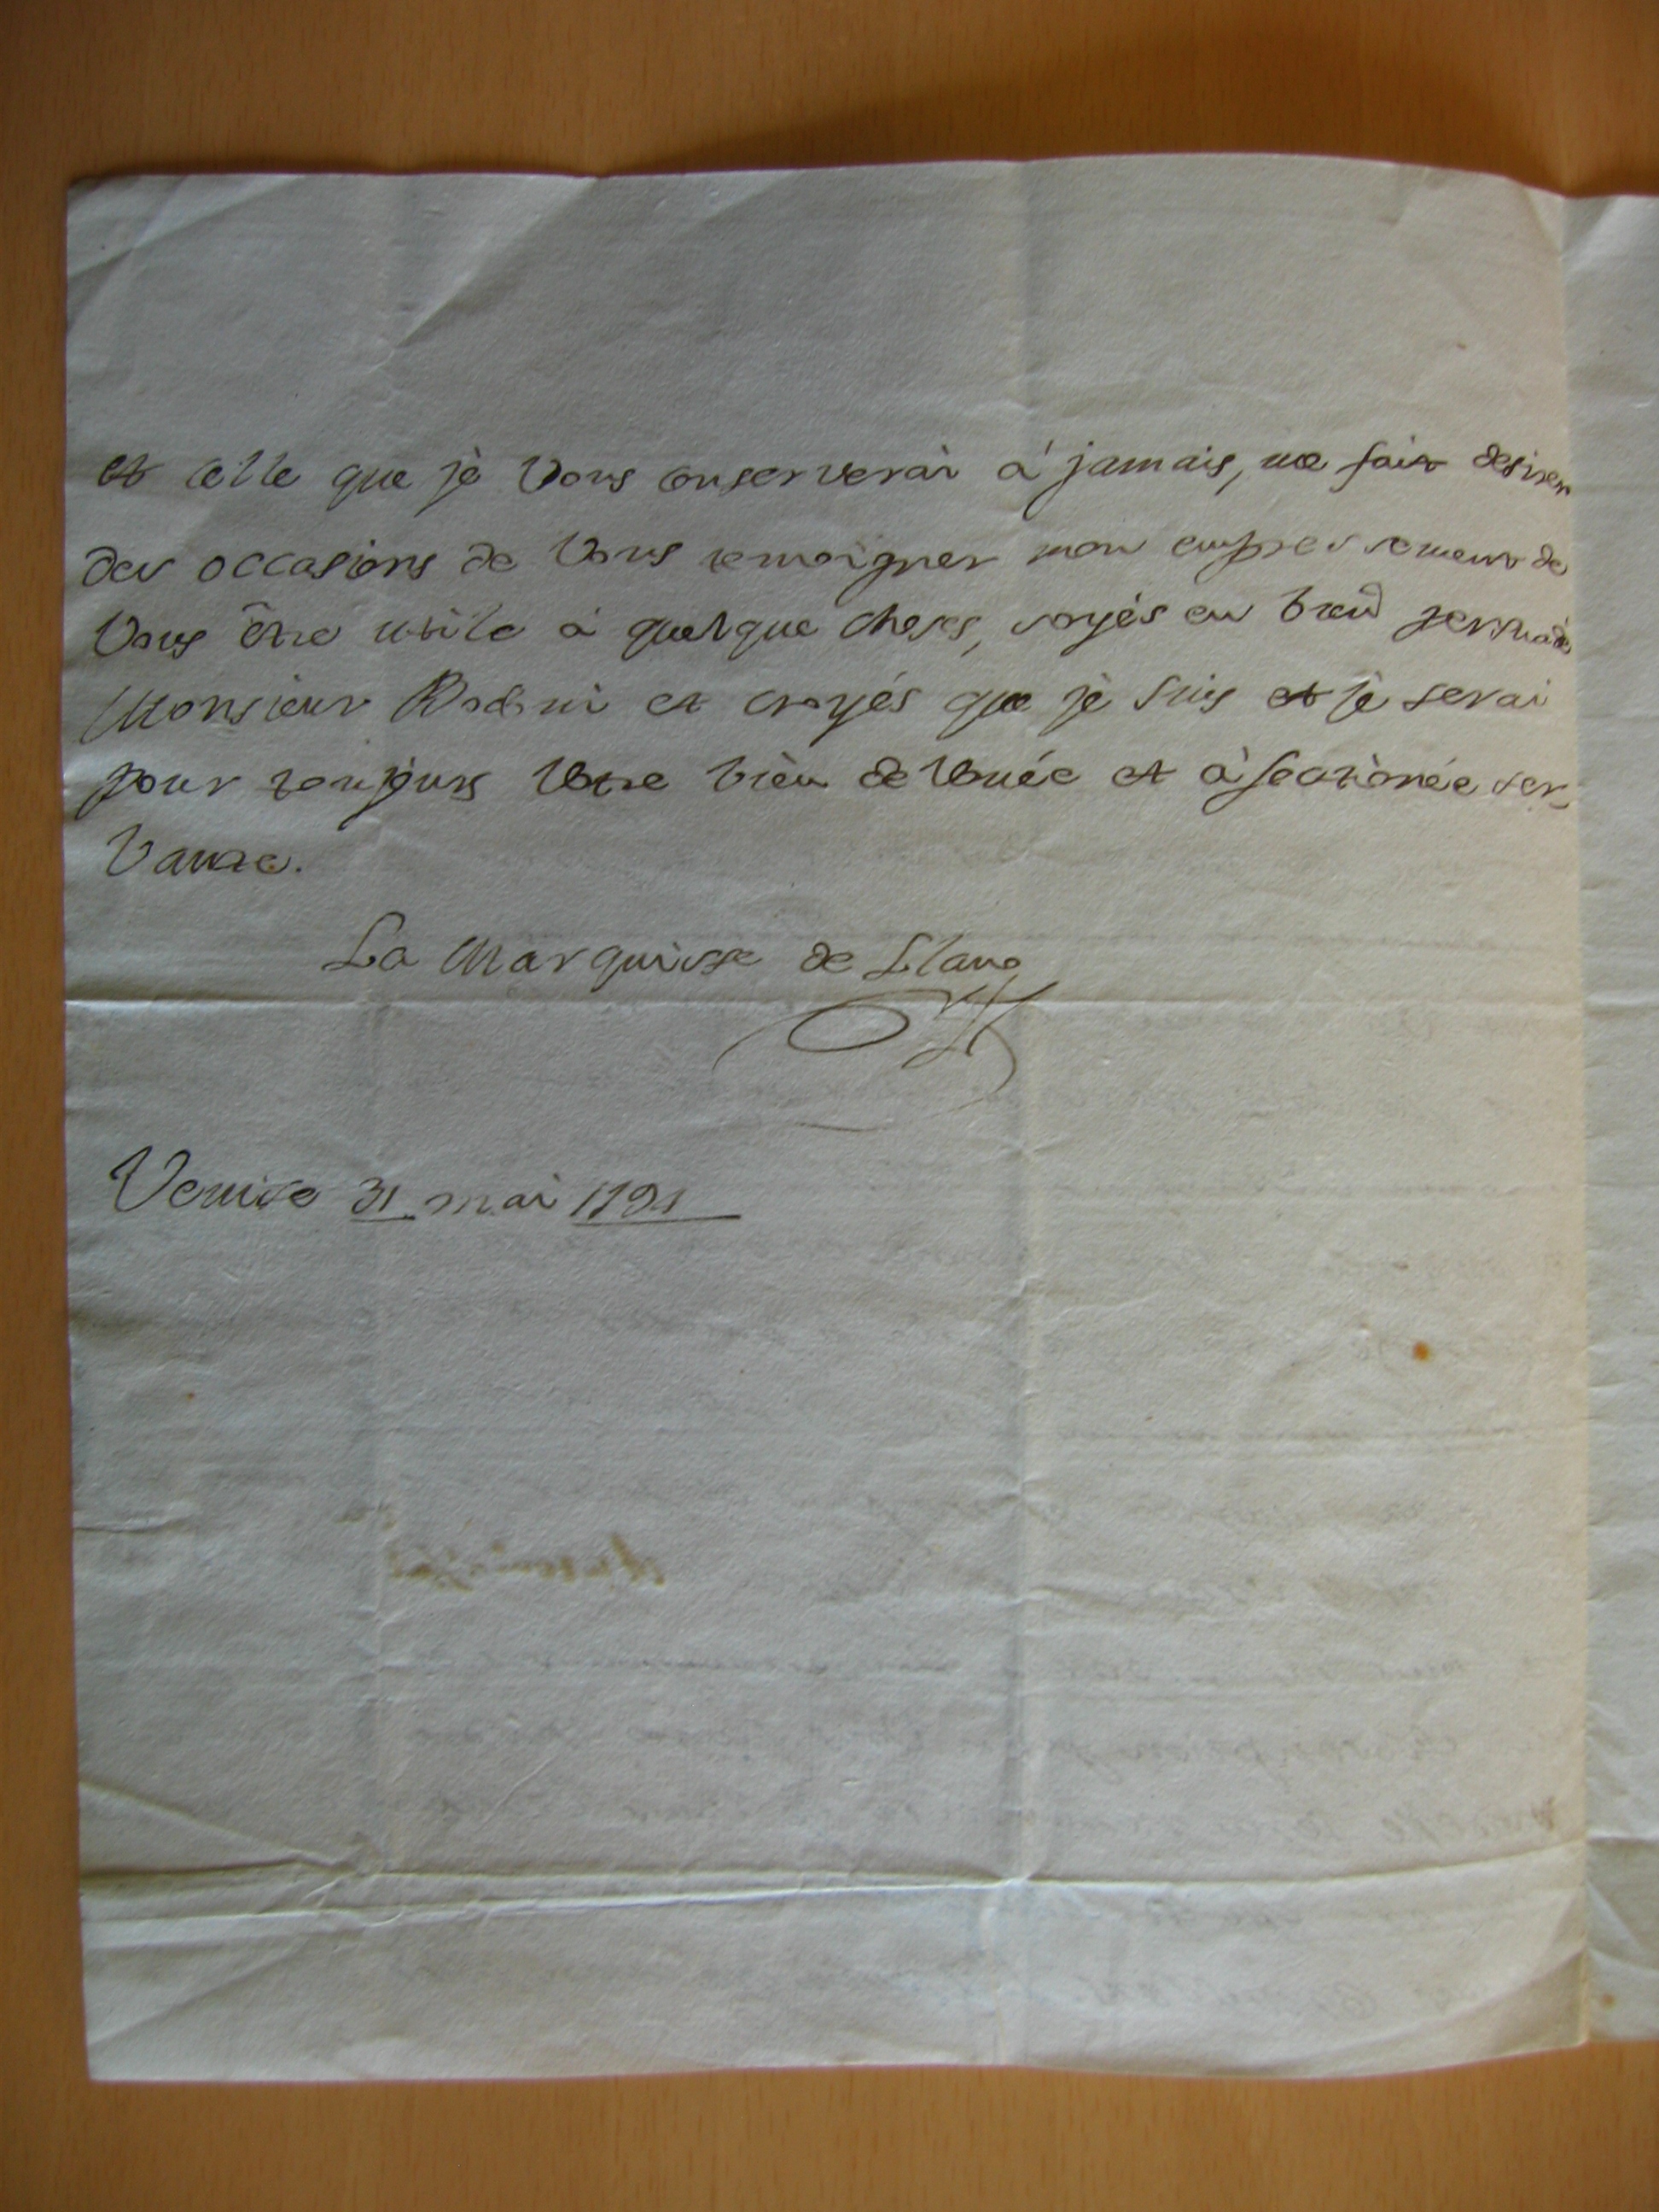 et celle que je vous conserverai à jamais, me fait desirer
des occasions de vous temoigner mon empressement de
vous être utile à quelque choses, soyés en bien persuadé
Monsieur Bodoni et croyés que je suis et je serai
pour toujours votre bièn devouée et afectionée ser-
vante.
La Marquise de Llano
Venise 31 mai 1791